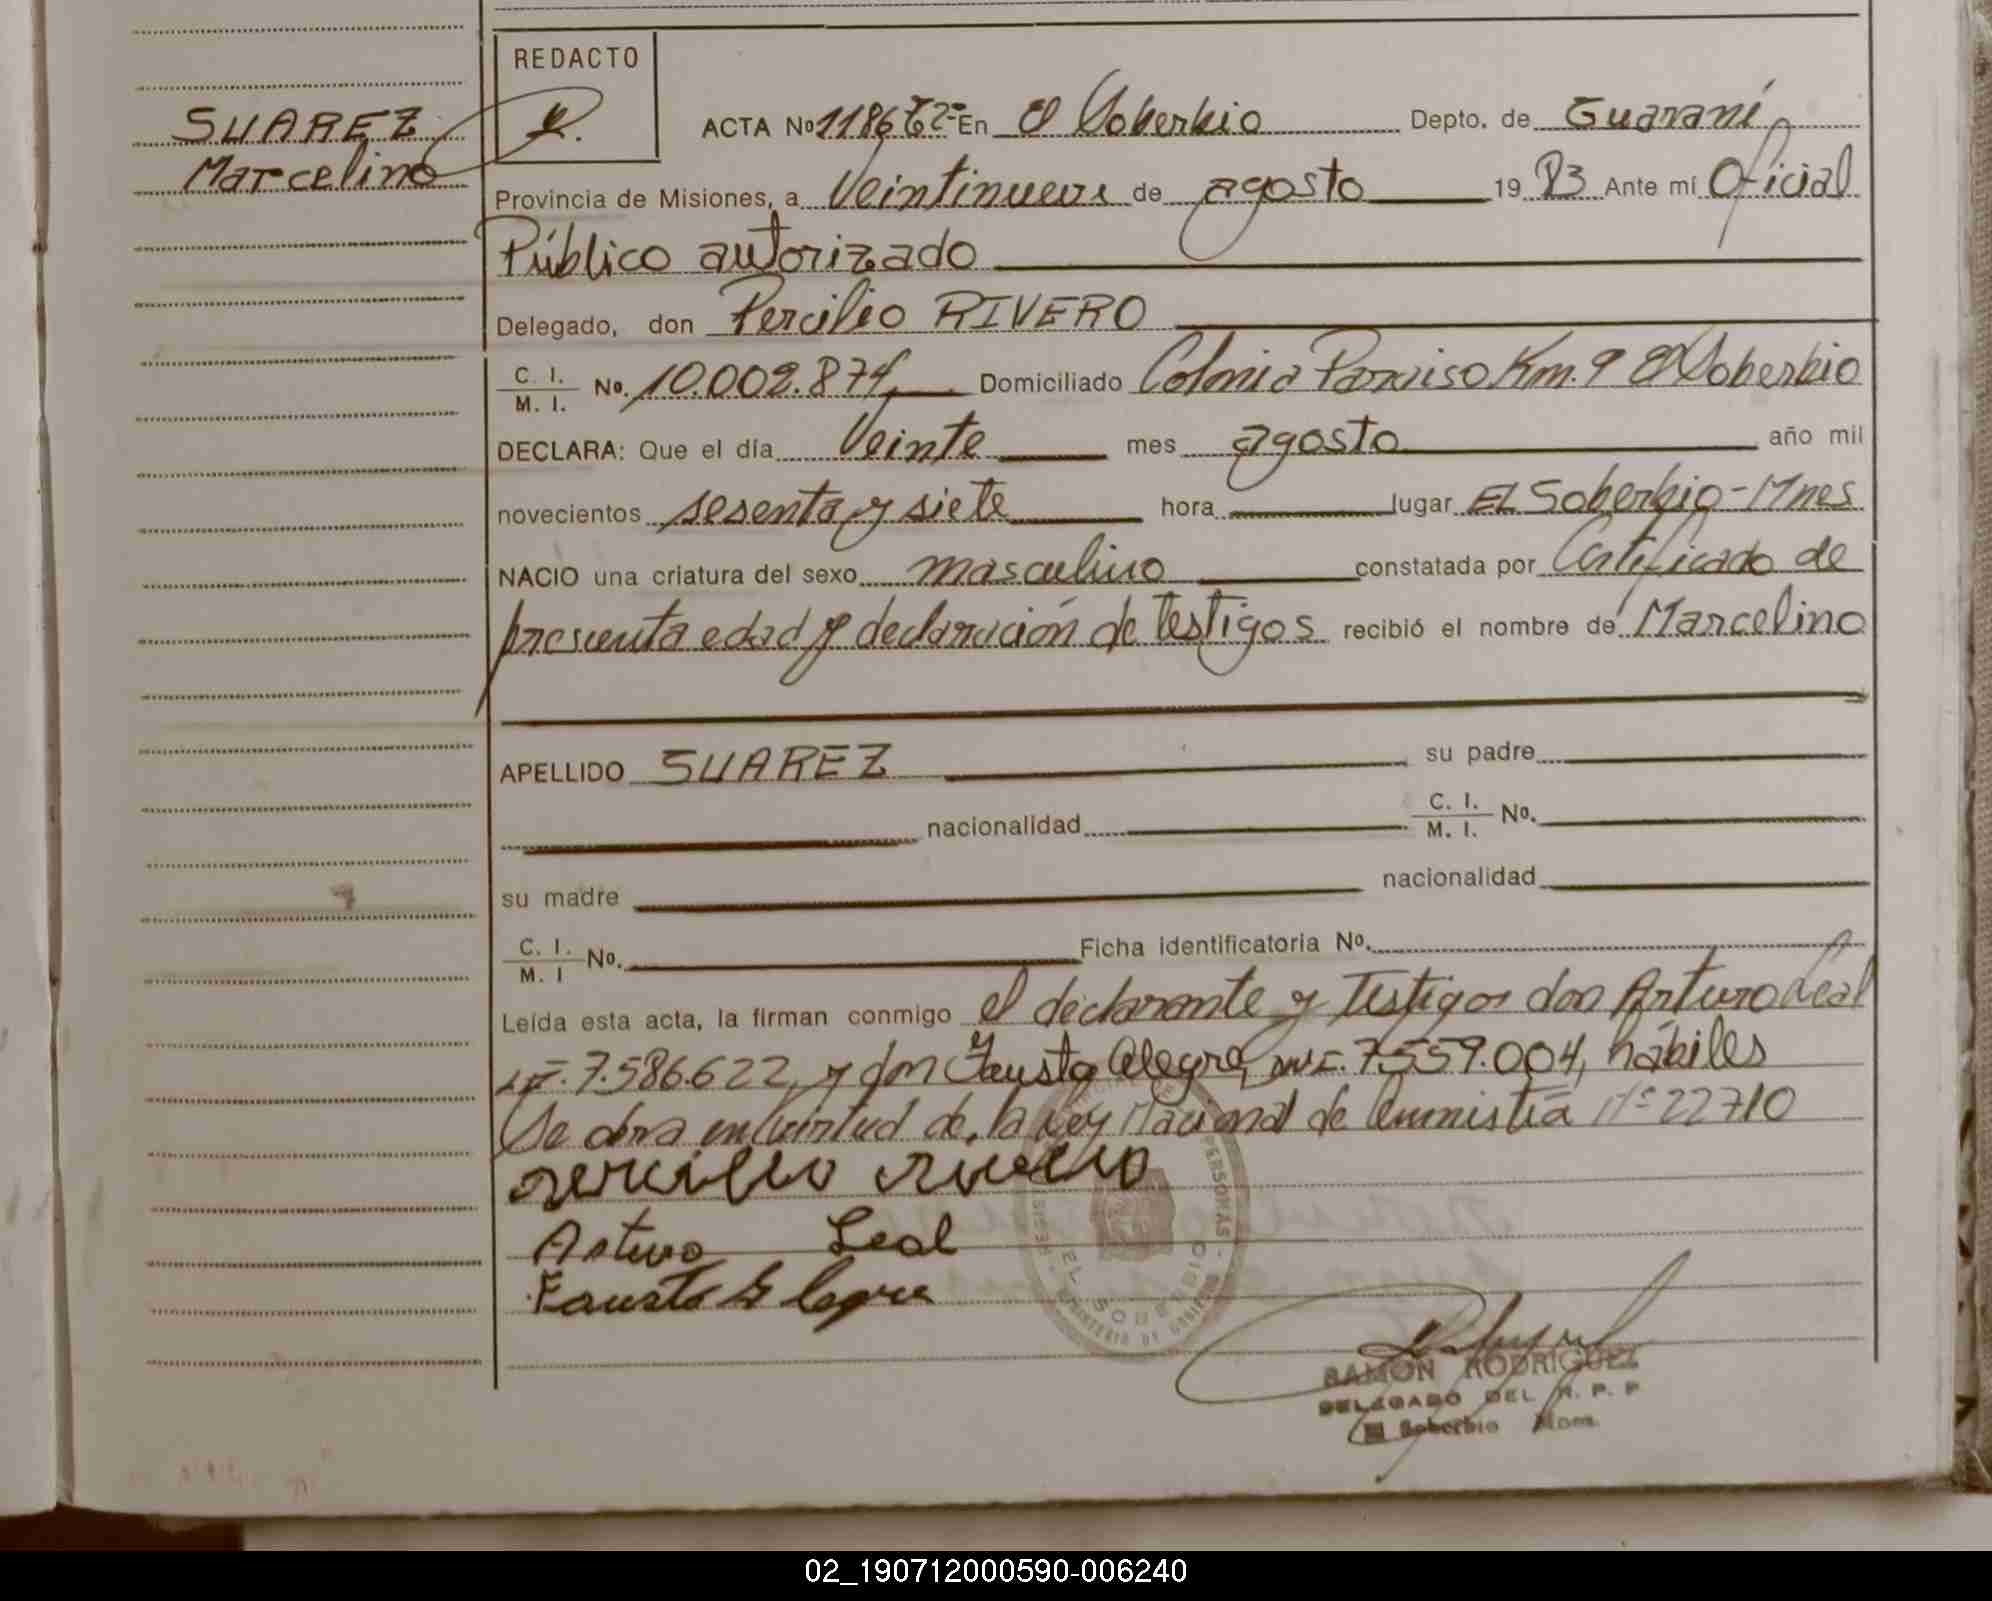 REDACTO
SUAREZ
Marcelino
ACTA No En El Soberbio Depto. de Guaraní
Provincia de Misiones, a Veintinueve de agosto 19 83 Ante mí Oficial
Público autorizado
Delegado, don Percilio RIVERO
C. I. / M. I. No. 10.002.874 Domiciliado Colonia Paraiso Km. 9 El Soberbio
DECLARA: Que el día Veinte mes agosto año mil
novecientos sesenta y siete hora lugar EL Soberbio-Mnes
NACIO una criatura del sexo masculino constatada por Certificado de
presunta edad y declaración de testigos recibió el nombre de Marcelino
APELLIDO SUAREZ su padre
nacionalidad C. I. / M. I. No.
su madre nacionalidad
C. I. / M. I No. Ficha identificatoria No.
Leída esta acta, la firman conmigo el declarante y testigos don Arturo Leal
7.586.622, y don Fausto Alegre, 7.559.004, hábiles
Se obra en virtud de la Ley Nacional de Amnistía Nº 22710
Percilio Rivero
Arturo Leal
Fausto Alegre
PERSONAS
EL SOBERBIO
MINISTERIO DE GOBIERNO
RAMON RODRIGUEZ
DELEGADO DEL R. P. P
El Soberbio Mnes.
02_190712000590-006240